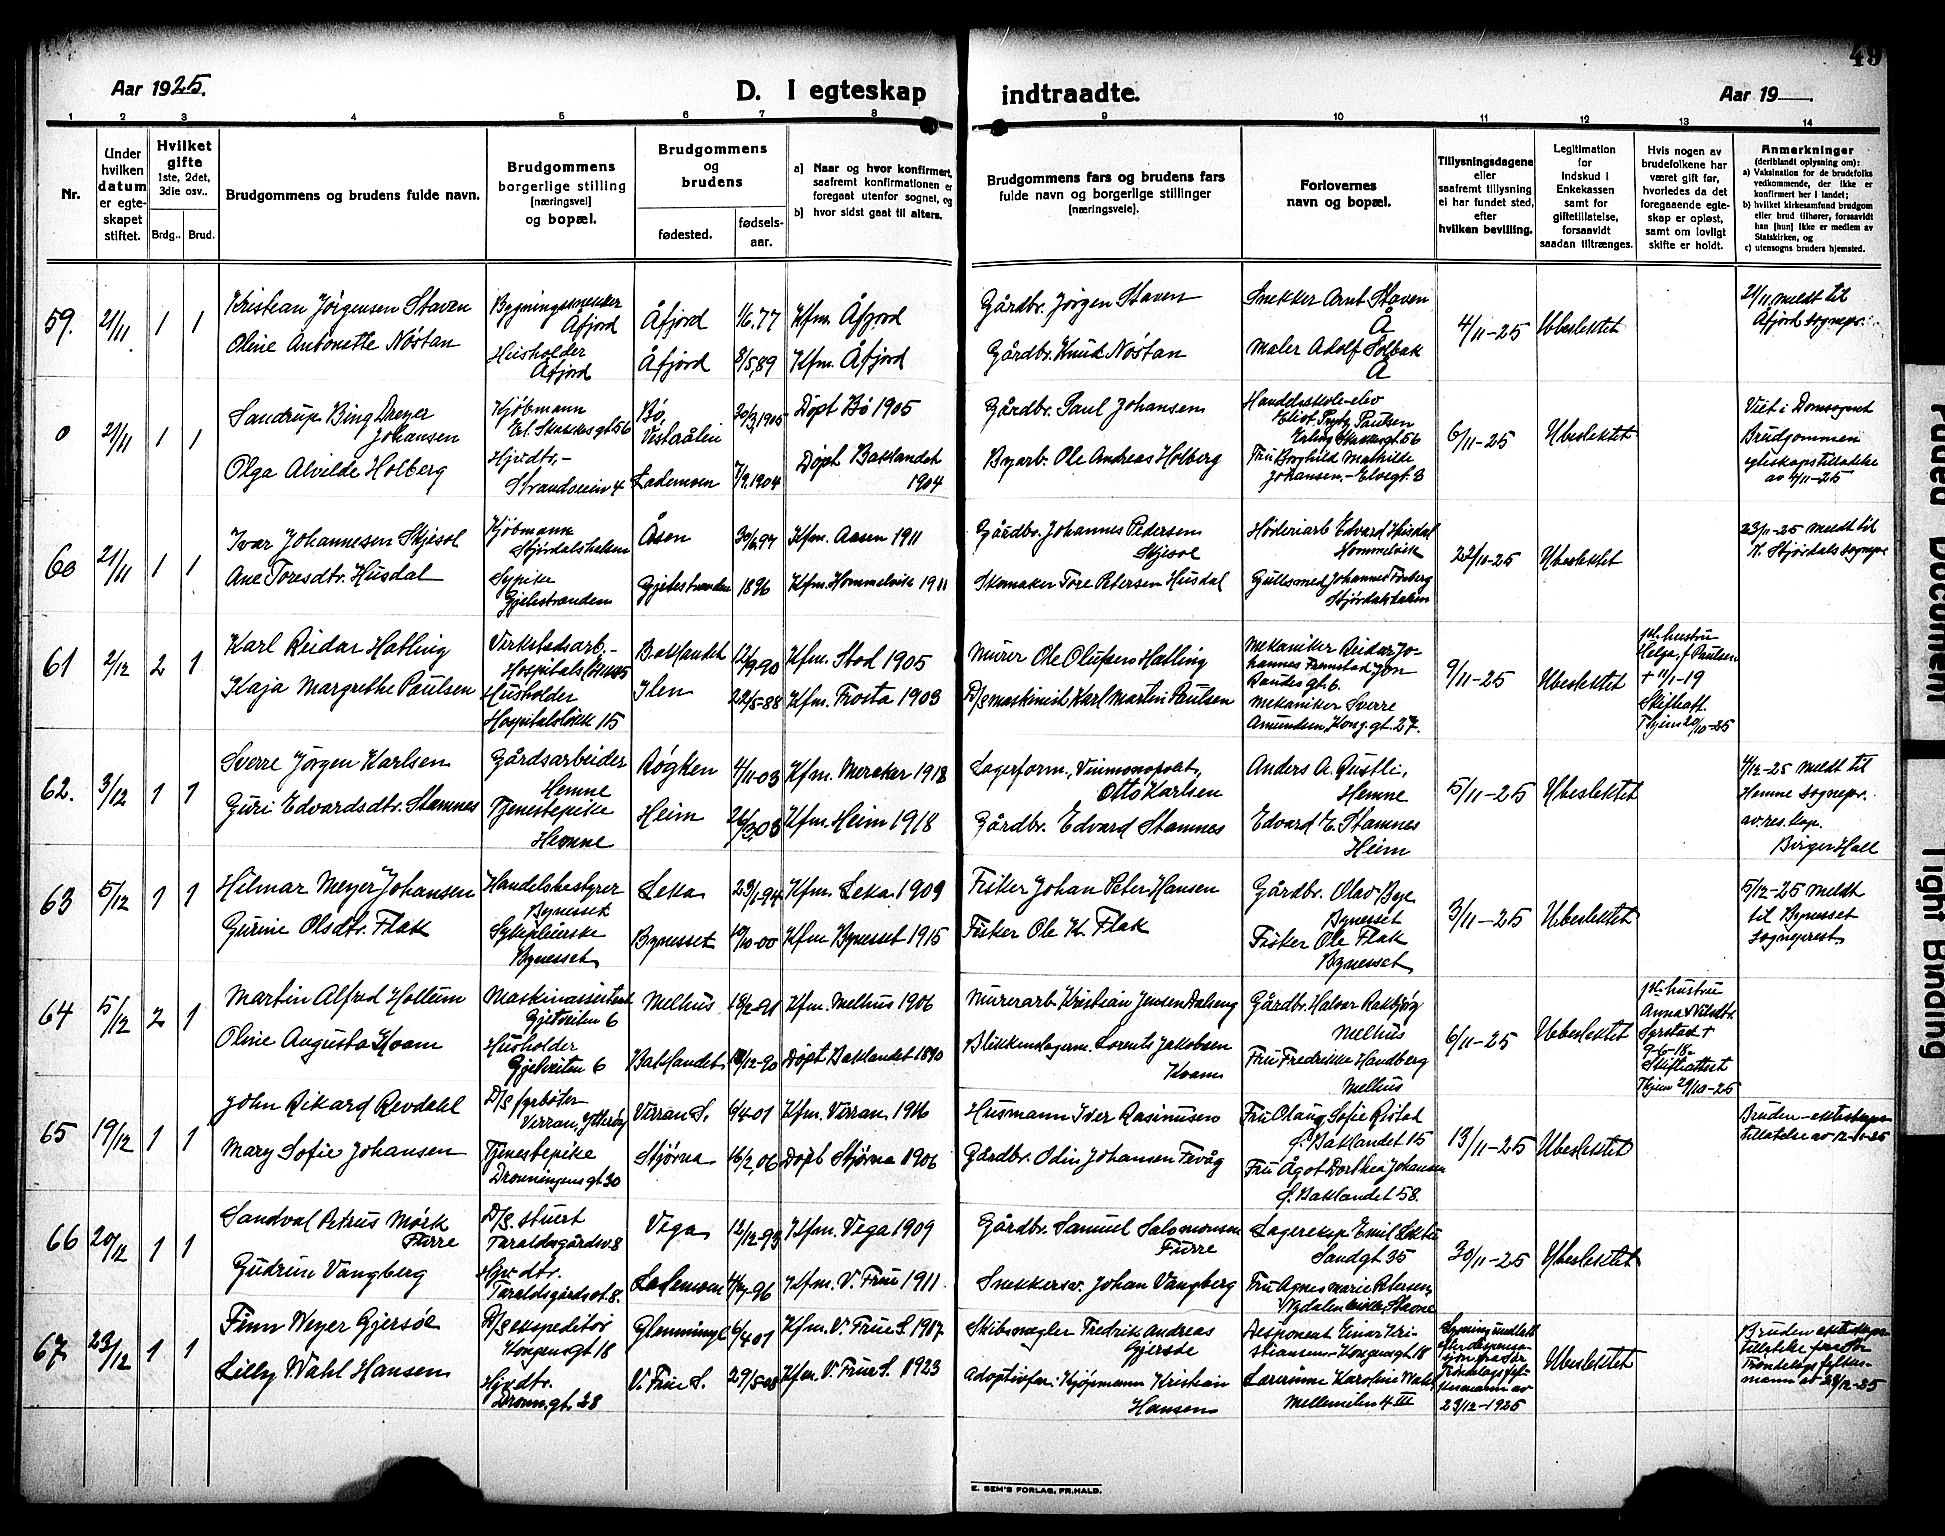 49
Aar 1925.
D. I egteskap indtraadte.
Aar 19
1 2 3 4 5 6 7 8 9 10 11 12 13 14
Nr.
Under hvilken datum er egteskapet stiftet.
Hvilket gifte
1ste, 2det, 3die osv..
Brdg.. Brud.
Brudgommens og brudens fulde navn.
Brudgommens borgerlige stilling
(næringsvei)
og bopæl.
Brudgommens og brudens
fødested.
fødselsaar.
a) Naar og hvor konfirmert, saafremt konfirmationen er foregaat utenfor sognet, og
b) hvor sidst gaat til alters.
Brudgommens fars og brudens fars
fulde navn og borgerlige stillinger
(næringsveie).
Forlovernes
navn og bopæl.
Tillysningsdagene
eller
saafremt tillysning
ei har fundet sted,
efter
hvilken bevilling.
Legitimation
for
indskud i
Enkekassen
samt for
giftetillatelse,
forsaavidt
saadan tiltrænges.
Hvis nogen av
brudefolkene har
været gift før,
hvorledes da det
foregaaende egteskap er opløst,
samt om lovligt
skifte er holdt.
Anmerkninger
(deriblandt oplysning om):
a) Vaksination for de brudefolks vedkommende, der ikke er konfirmert her i landet;
b) hvilket kirkesamfund brudgom eller brud tilhører, forsaavidt han [hun] ikke er medlem av Statskirken, og
c) utensogns bruders hjemsted.
59. 21/11 1 1
Kristian Jörgensen Staven
Oline Antonette Nöstan
Bygningssnekker
Åfjord
Husholder
Åfjord
Åfjord
Åfjord
1/6.77
8/5.89
Kfm. Åfjord
Kfm. Åfjord
Gårdbr. Jørgen Staven
Gårdbr. Knud Nöstan
Snekker Arnt Staven
Å
Maler Adolf Solbak
Å
4/11-25
Ubeslektet
21/11 meldt til
Åfjord sognepr.
0 21/11 1 1
Sandrup Bing Dreyer
Johansen
Olga Alvilde Holberg
Kjøbmann
Erl. Skakkes gt 56
Hjvdtr.-
Strandveien 4
Bö,
Vesterålen
Lademoen
30/3.1905
7/9.1904
Döpt Bö 1905
Döpt Baklandet
1904
Gårdbr. Paul Johansen
Byarb. Ole Andreas Holberg
Handelsskole-elev
Paulsen
Erling Skakkesgt. 56
Fru Borghild Mathilde
Johansen. - Elvegt. 3
6/11-25
Ubeslektet
Viet i Domsognet
Brudgommen
egteskapstilladelse
av 4/11-25
60 21/11 1 1
Ivar Johannesen Skjesol
Ane Toresdtr. Husdal
Kjöbmann
Stjördalshalsen
Sypike
Gjelestranden
Åsen
Gjelestranden
30/6.97
1896
Kfm. Aasen 1911
Kfm. Hommelvik 1911
Gårdbr. Johannes Pedersen
Skjesol
Skomaker Tore Petersen Husdal
Edvard Husdal
Hommelvik
Gullsmed Johannes
Stjördalshalsen
22/11-25
Ubeslektet
23/11-25 meldt til
N. Stjørdals sognepr
61 2/12 2 1
Karl Reidar Halling
Kaja Margrethe Paulsen
Verkstedsarb.-
Hospitalsløkk 15
Husholder
Hospitalsløkk 15
Baklandet
Ilen
12/9-90
22/5-88
Kfm. Stod 1905
Kfm. Frosta 1903
Murer Ole Olufsen Halling
D/S maskinist Karl Martin Paulsen
Mekaniker Reidar Johannes Fremstad Jon
Raudes gt. 6.
Mekaniker Sverre
Amundsen, Kong. gt. 27.
9/11-25
Ubeslektet
1ste hustru
Helga, f Paulsen
+ 11/1-19
Skifteatt.
Thjem 20/10-25
62. 3/12 1 1
Sverre Jørgen Karlsen
Guri Edvardsdtr. Stamnes
Gårdsarbeider
Hemne
Tjenestepike
Hemne
Røgken
Heim
4/11-03
26/3.03
Kfm. Meraker 1918
Kfm. Heim 1918
Lagerform., Vinmonopolet,
Otto Karlsen
Gårdbr. Edvard Stamnes
Anders A. Rustli,
Hemne
Edvard E. Stamnes
Heim
5/11-25
Ubeslektet
4/12-25 meldt til
Hemne sognepr.
av res. kap.
Birger Hall
63 5/12 1 1
Hilmar Meyer Johansen
Gurine Olsdtr. Flak
Handelsbestyrer
Bynesset
Sykepleierske
Bynesset
Leka
Bynesset
23/1-94
19/10-00
Kfm. Leka 1909
Kfm Bynesset 1915
Fisker Johan Peter Hansen
Fisker Ole K. Flak
Gårdbr. Olav Bye
Bynesset
Fisker Ole Flak
Bynesset
3/11-25
Ubeslektet
5/12-25 meldt
til Bynesset
sogneprest
64 5/12 2 1
Martin Alfred Hollum
Oline Augusta Kvam
Maskinassistent
Gjetveiten 6
Husholder
Gjetveiten 6
Melhus
Baklandet
18/2-91
18/12-90
Kfm. Melhus 1906
Döpt Baklandet 1890
Murerarb. Kristian Jensen Dalseng
Blikkenslagerm. Lorents Jakobsen
Kvam
Gårdbr. Halvar Rakbjög
Melhus
Fru Fredrikke Handberg
Melhus
6/11-25
Ubeslektet
1ste hustru
Anna
+
9-6-18-
Skifteattest
Thjem 29/10-25
65 19/12 1 1
John Rikard Revdahl
Mary Sofie Johansen
D/S fyrböter
Verran, Ytteröy
Tjenestepike
Dronningens gt 30
Verran S.
Stjörna
6/4-01
16/2.06
Kfm. Verran 1916
Döpt Stjörna 1906
Husmann Iver Rasmussen
Gårdbr. Odin Johansen Fevåg
Fru Olaug Sofie
Ø. Baklandet 15
Fru Ågot Dorthea Johansen
Ø. Baklandet 58.
13/11-25
Ubeslektet
Bruden - ekteskaps-
tillatelse av 12-11-25
66 20/12 1 1
Sandval Petrus Mörk
Furre
Gudrun Vangberg
D/S. stuert
Taraldsgårdsv. 8
Hjvdtr.
Taraldsgårdsvt. 8.
Vega
Lademoen
12/12-93
Kfm. Vega 1909
Kfm. V. Frue 1911
Gårdbr. Samuel Salomonsen
Furre
Snekkersv. Johan Vangberg
Lagereksp Emil
Sandgt 35
Fru Agnes Marie Petersen,
Stavne
30/11-25
Ubeslektet
67. 23/12 1 1
Finn Weyer Gjersöe
Lilly Wahl Hansen
D/S ekspeditör
Kongensgt 18
Hjvdtr.
Dronn. gt. 28
Glemminge
V. Frue S.
6/4 01
Kfm. V. Frue S. 1917
Kfm. V. Frue S. 1923
Skibsmegler Fredrik Andreas
Gjersöe
Adoptivfar: Kjøpmann Kristian
Hansen
Disponent Einar Kristiansen - Kongensgt 18
Lærerinne Karoline Wahl
Mellemilen 4 III
Lysning undlatt
efter dispensasjon fra Sør
Trøndelags fylkesmann av
23/12-1925
Ubeslektet
Bruden ekteskaps
tillatelse fra Sør
Trøndelags fylkesmann av 23/12-25
E. SEM'S FORLAG, FR.HALD.
Faded Document
Tight Binding